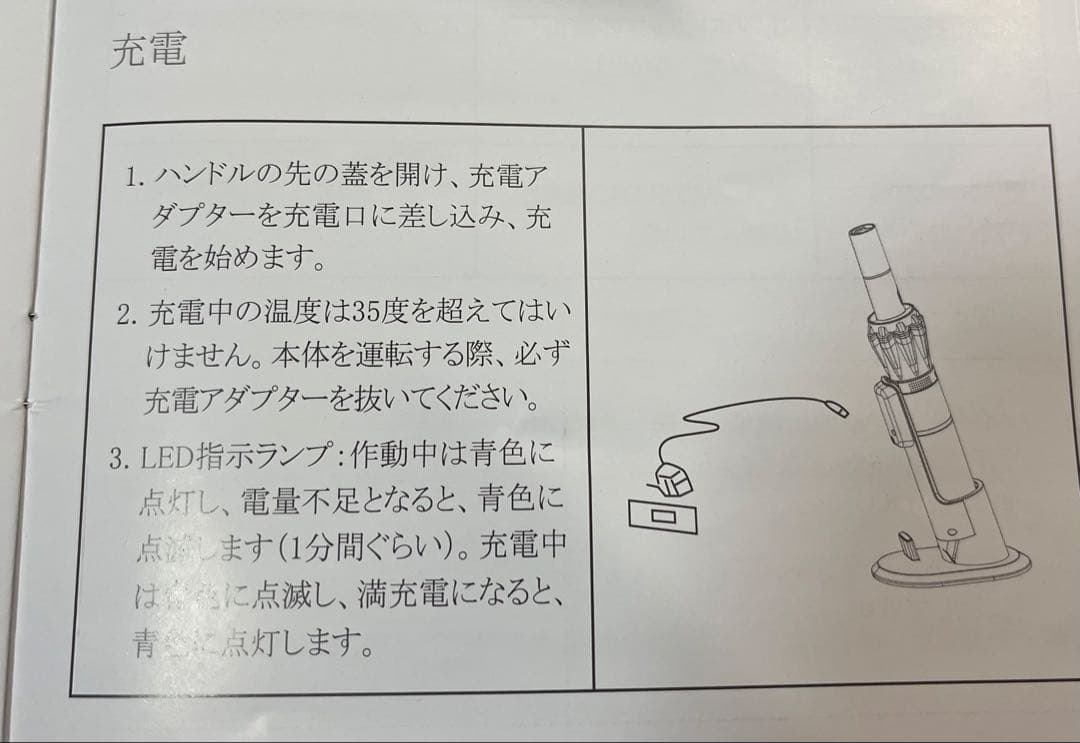 充電
1. ハンドルの先の蓋を開け、充電ア
ダプターを充電口に差し込み、充
電を始めます。
2. 充電中の温度は35度を超えてはい
けません。本体を運転する際、必ず
充電アダプターを抜いてください。
3. LED指示ランプ：作動中は青色に
点灯し、電量不足となると、青色に
点滅します（1分間ぐらい）。充電中
は青色に点滅し、満充電になると、
青色に点灯します。